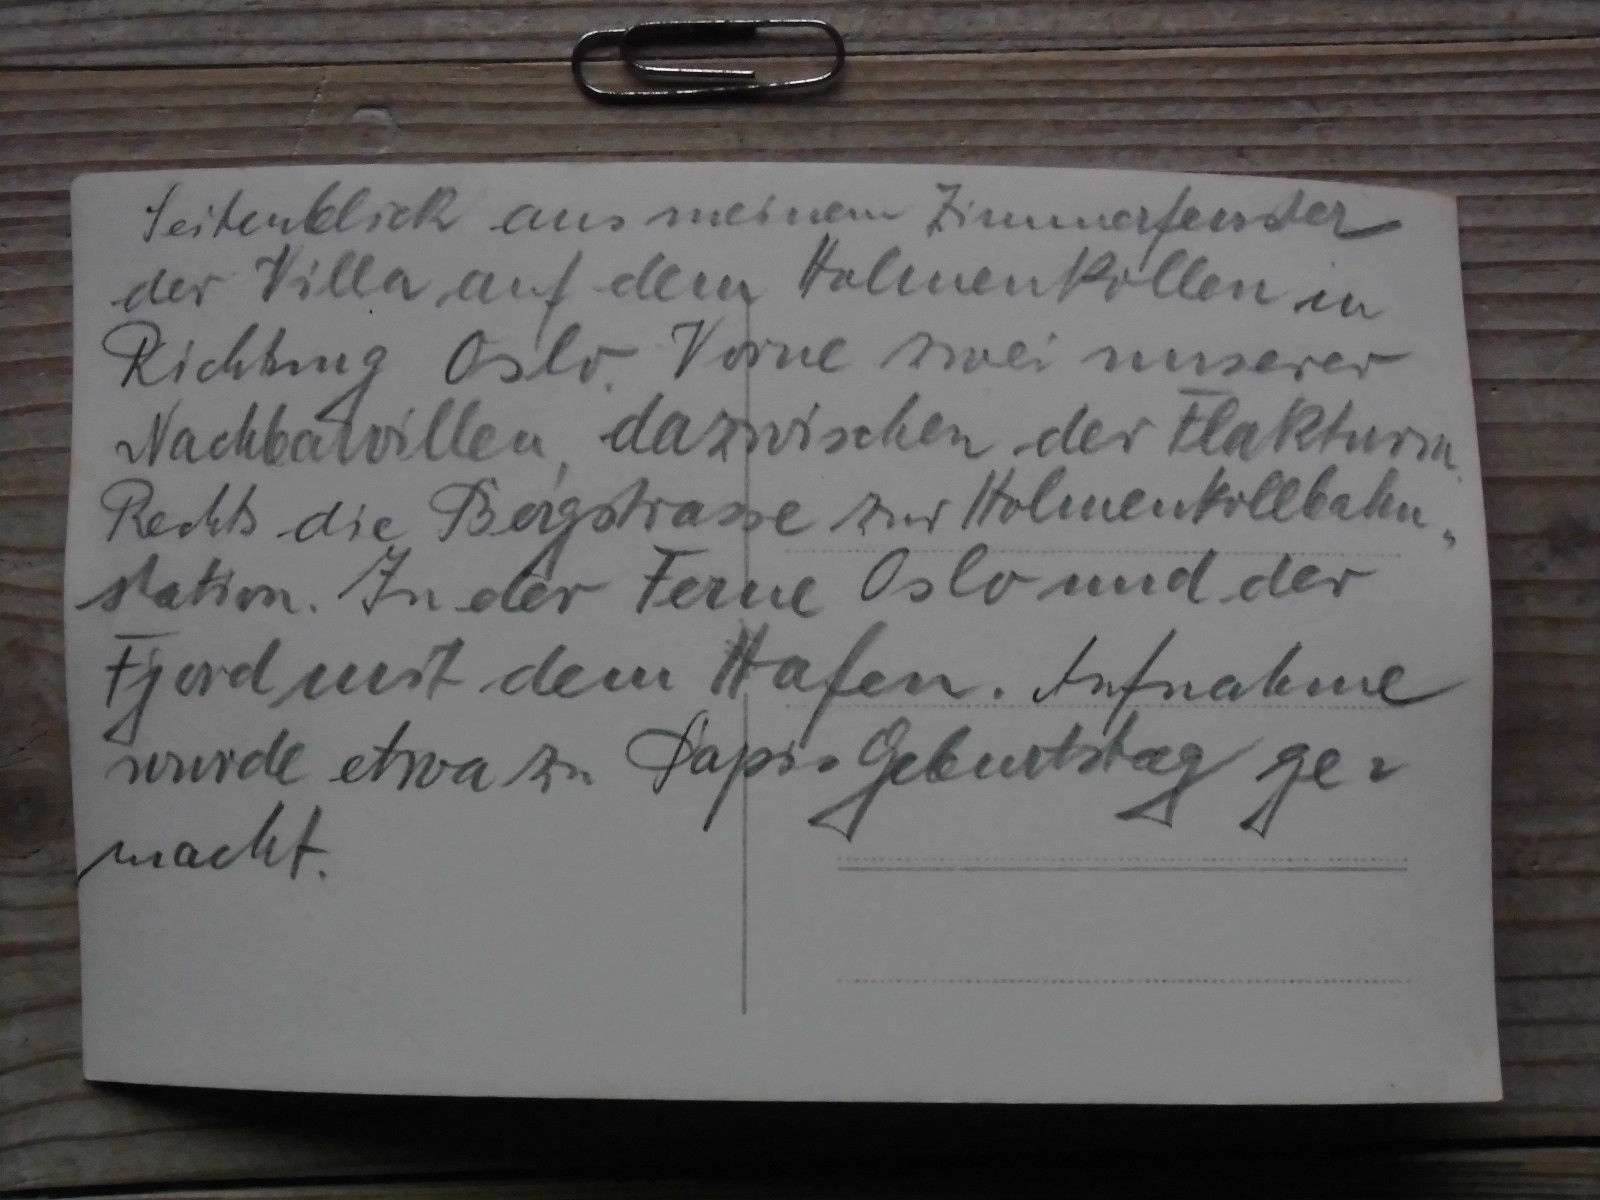 Seitenblick aus meinem Zimmerfenster
der Villa auf dem Holmenkollen in
Richtung Oslo. Vorne zwei unserer
Nachbarvillen, dazwischen der Flakturm.
Rechts die Bergstrasse zur Holmenkollbahn-
station. In der Ferne Oslo und der
Fjord mit dem Hafen. Aufnahme
wurde etwa zu Papis Geburtstag ge-
macht.